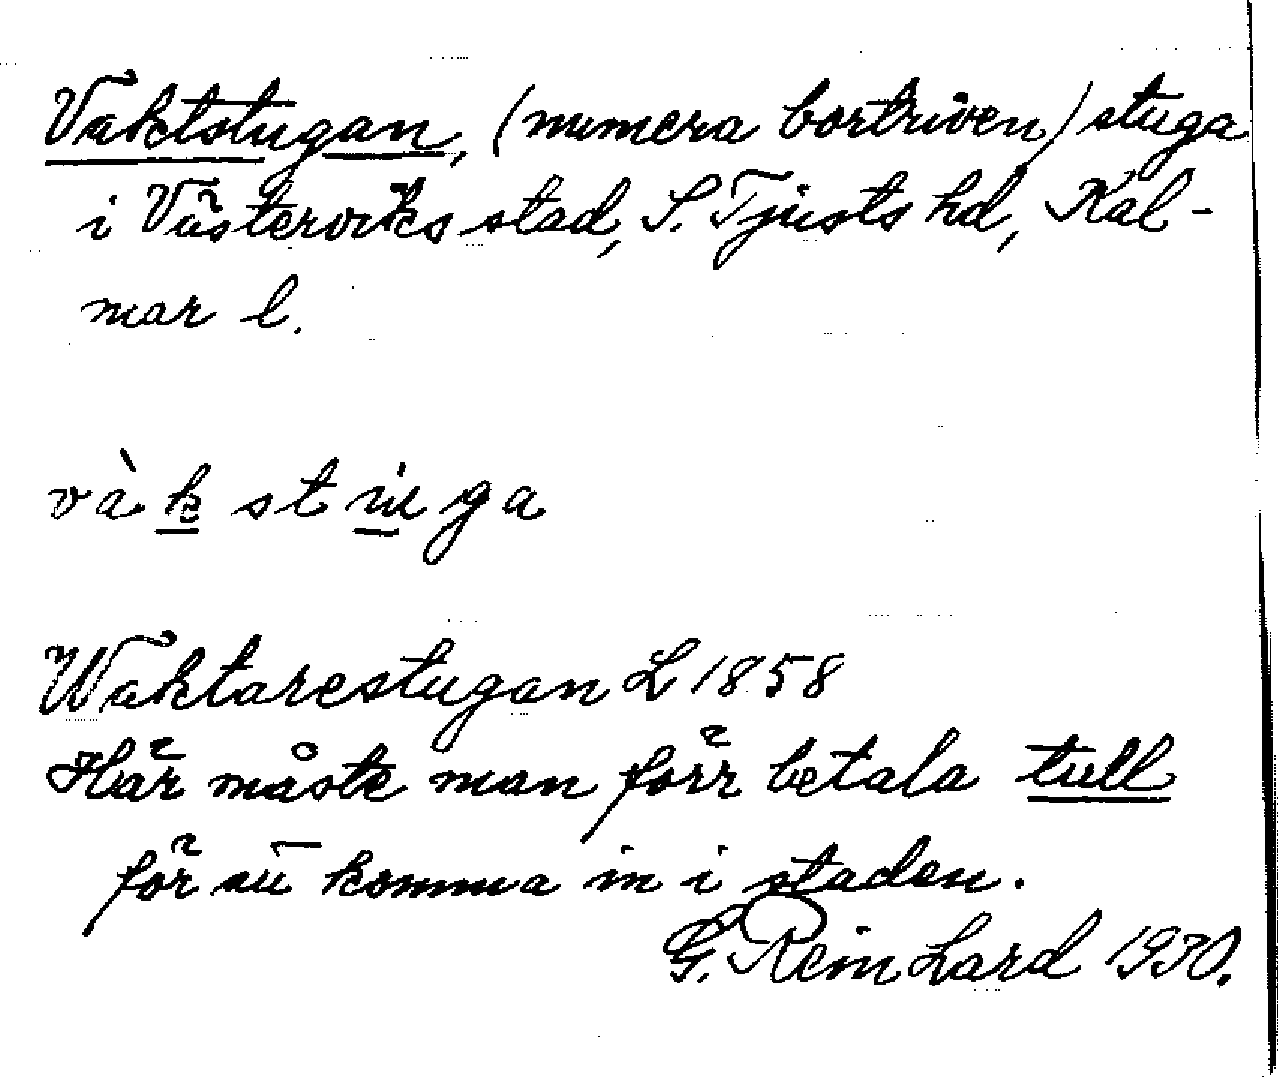 Vaktstugan, (numera bortriven) stuga
i Västerviks stad, S. Tjusts hd, Kal-
mar l.
vàk stuga
Waktarestugan L 1858
Här måste man förr betala tull
för att komma in i staden.
G. Reinhard 1930.